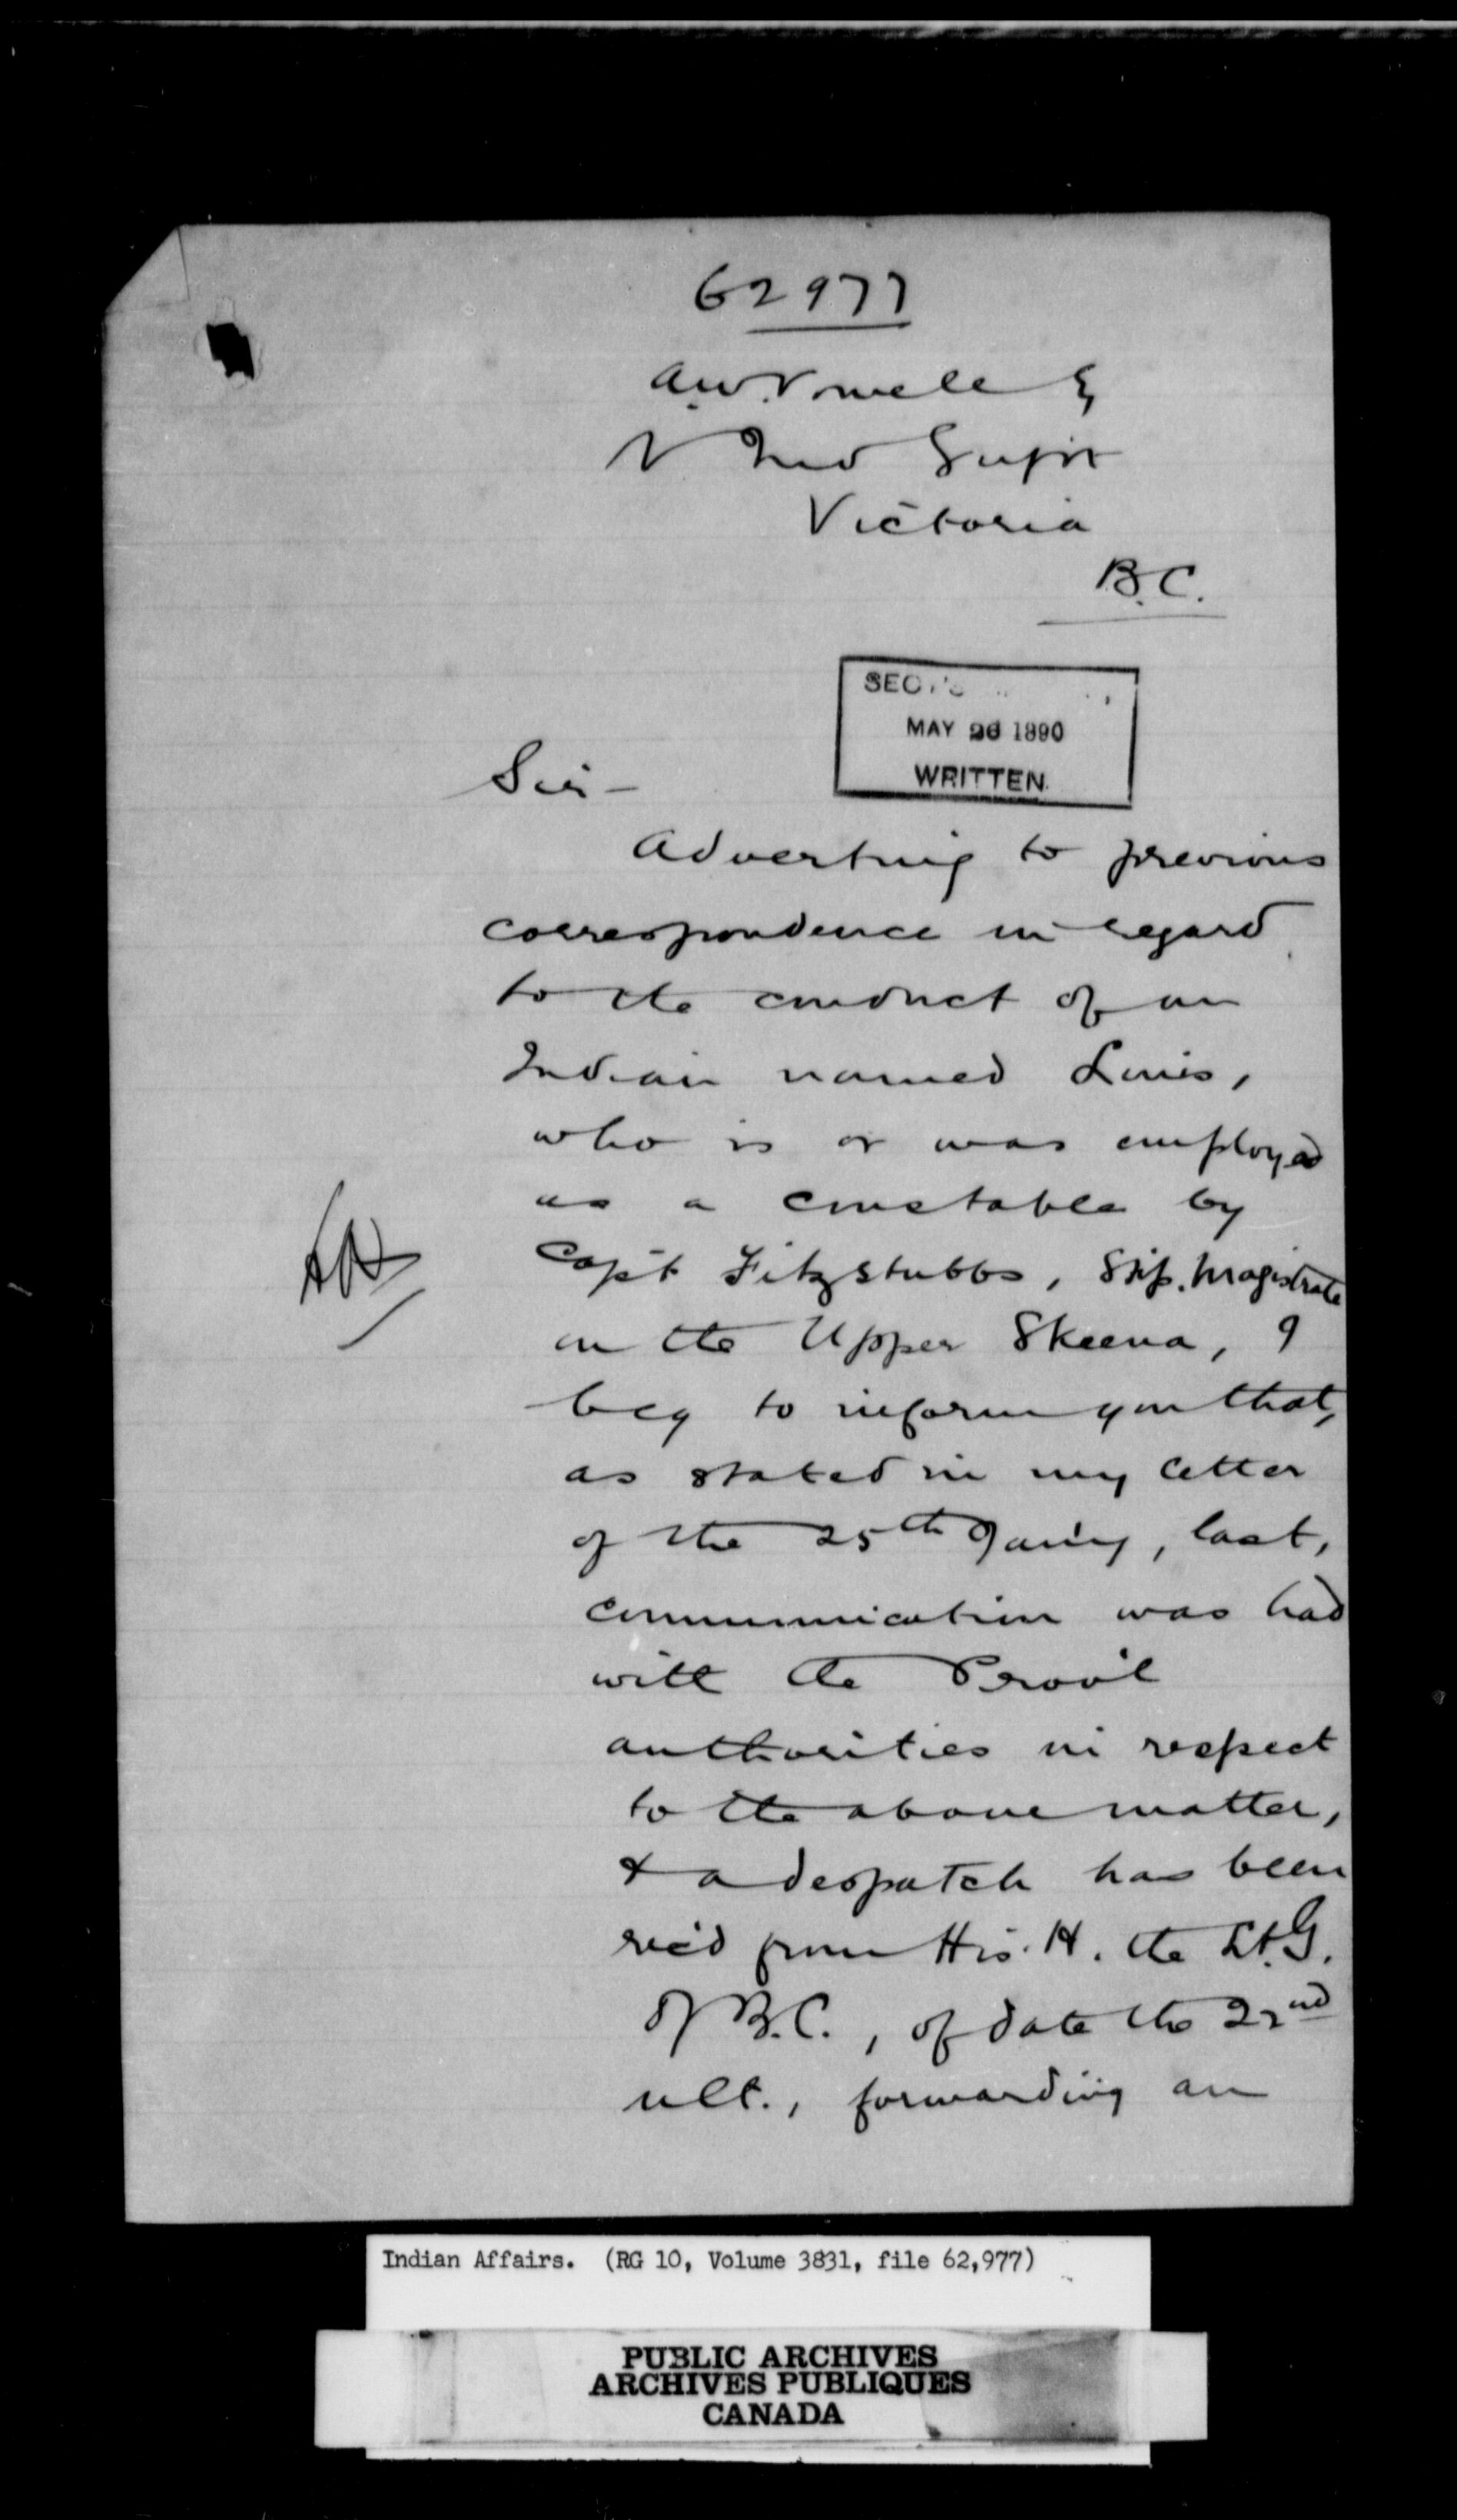 62977
A.W. Vowell Eq
V Ind Supt
Victoria
B.C.
SEC
MAY 26 1890
WRITTEN.
Sir -
Adverting to previous
correspondence in regard
to the conduct of an
Indian named Louis,
who is or was employed
as a constable by
Capt Fitzstubbs, Stip. Magistrate
on the Upper Skeena, I
beg to inform you that,
as stated in my letter
of the 25th Jan'y, last,
communication was had
with the Prov'l
authorities in respect
to the above matter,
& a despatch has been
rec'd from His. H. the Lt. G.
of B.C., of date the 22nd
ult., forwarding an
Indian Affairs. (RG 10, Volume 3831, file 62,977)
PUBLIC ARCHIVES
ARCHIVES PUBLIQUES
CANADA